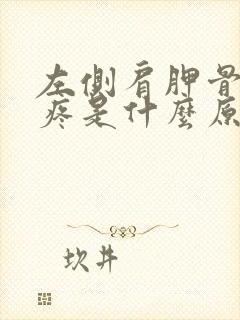 左側肩胛骨
疼是什麼原
坎井